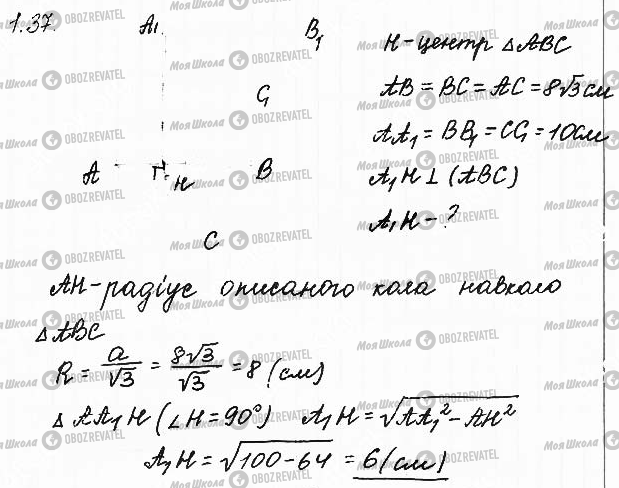 1.37.
A₁ B₁ C₁
A H B
C
H - центр △ABC
AB = BC = AC = 8√3 см
AA₁ = BB₁ = CC₁ = 10 см
A₁H ⊥ (ABC)
A₁H - ?
AH - радіус описаного кола навколо
△ABC
R = a/√3 = 8√3/√3 = 8 (см)
△AA₁H (∠H = 90°) A₁H = √(AA₁² - AH²)
A₁H = √(100 - 64) = 6 (см)
Моя Школа OBOZREVATEL